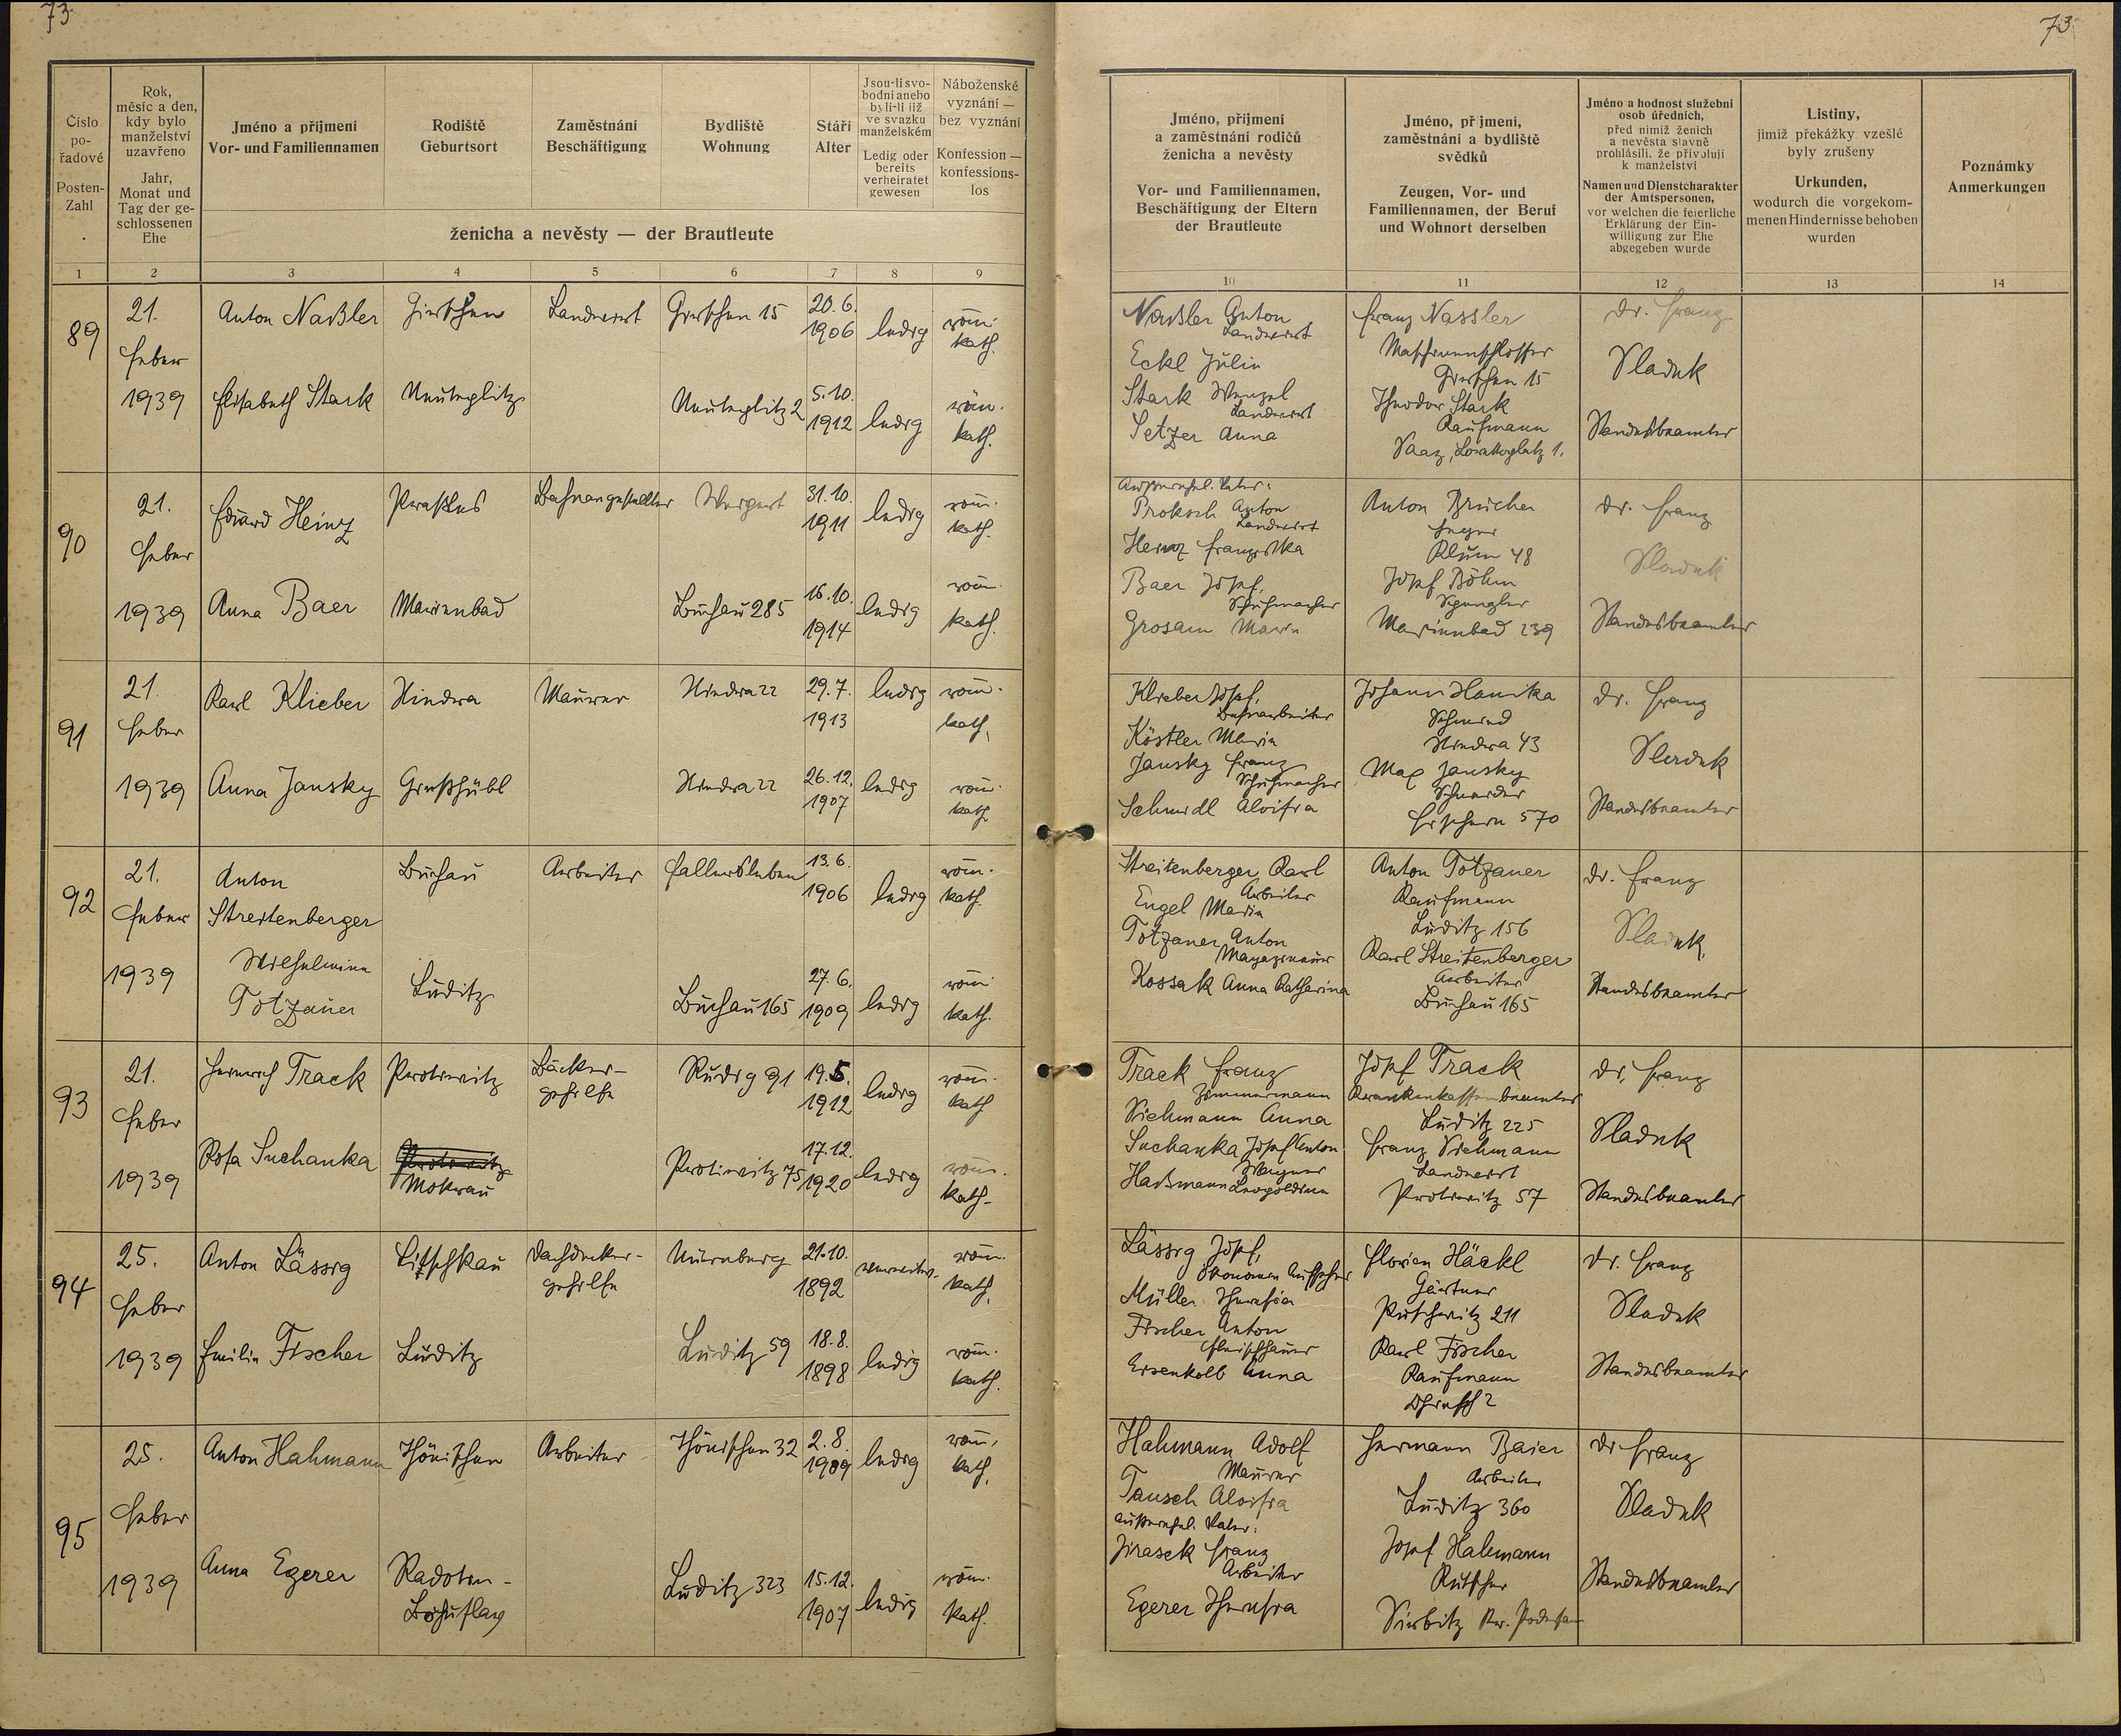 73
73
Číslo po-řadové
Posten-Zahl
Rok, měsíc a den, kdy bylo manželství uzavřeno
Jahr, Monat und Tag der ge-schlossenen Ehe
Jméno a příjmení
Vor- und Familiennamen
Rodiště
Geburtsort
Zaměstnání
Beschäftigung
Bydliště
Wohnung
Stáří
Alter
Jsou-li svo-bodni anebo byli-li již ve svazku manželském
Ledig oder bereits verheiratet gewesen
Náboženské vyznání — bez vyznání
Konfession — konfessions-los
ženicha a nevěsty — der Brautleute
Jméno, příjmení a zaměstnání rodičů ženicha a nevěsty
Vor- und Familiennamen, Beschäftigung der Eltern der Brautleute
Jméno, příjmení, zaměstnání a bydliště svědků
Zeugen, Vor- und Familiennamen, der Beruf und Wohnort derselben
Jméno a hodnost služební osob úředních, před nimiž ženich a nevěsta slavně prohlásili, že přivolují k manželství
Namen und Dienstcharakter der Amtspersonen, vor welchen die feierliche Erklärung der Ein-willigung zur Ehe abgegeben wurde
Listiny, jimiž překážky vzešlé byly zrušeny
Urkunden, wodurch die vorgekom-menen Hindernisse behoben wurden
Poznámky
Anmerkungen
1 2 3 4 5 6 7 8 9 10 11 12 13 14
89
21. Feber 1939
Anton Naßler Girschen Landwirt Girschen 15 20.6. 1906 ledig röm. kath.
Elisabeth Stark Neuteplitz Neuteplitz 2 5.10. 1912 ledig röm. kath.
Naßler Anton
Landwirt
Eckl Julie
Stark Wenzel
Landwirt
Setzer Anna
Franz Nassler
Maschinenschlosser
Girschen 15
Theodor Stark
Kaufmann
Saaz, Lorettoplatz 1.
Dr. Franz
Sladek
Standesbeamter
90
21. Feber 1939
Eduard Heinz Praßles Bahnangestellter 31.10. 1911 ledig röm. kath.
Anna Baer Marienbad Buchau 285 16.10. 1914 ledig röm. kath.
Außerehel. Vater:
Proksch Anton
Landwirt
Heinz Franziska
Baer Josef,
Schuhmacher
Grosam Marie
Anton Brucher
Heger
Klum 48
Josef Böhm
Spengler
Marienbad 239
Dr. Franz
Sladek
Standesbeamter
91
21. Feber 1939
Karl Klieber Hindra Maurer Hindra 22 29.7. 1913 ledig röm. kath.
Anna Jansky Gießhübl Hindra 22 26.12. 1907 ledig röm. kath.
Klieber Josef,
Bahnarbeiter
Köstler Maria
Jansky Franz
Schuhmacher
Schmidl Aloisia
Johann Hanika
Schmied
Hindra 43
Max Jansky
Schneider
Fischern 570
Dr. Franz
Sladek
Standesbeamter
92
21. Feber 1939
Anton Streitenberger Buchau Arbeiter Fallersleben 13.6. 1906 ledig röm. kath.
Wilhelmine Totzauer Luditz Buchau 165 27.6. 1909 ledig röm. kath.
Streitenberger Karl
Arbeiter
Engel Maria
Totzauer Anton
Kossak Anna Katharina
Anton Totzauer
Kaufmann
Luditz 156
Karl Streitenberger
Arbeiter
Buchau 165
Dr. Franz
Sladek,
Standesbeamter
93
21. Feber 1939
Heinrich Track Protiwitz Bäcker-gehilfe Rudig 91 19.5. 1912 ledig röm. kath
Rosa Suchanka Protiwitz Mokrau Protiwitz 75 17.12. 1920 ledig röm. kath.
Track Franz
Zimmermann
Viehmann Anna
Suchanka Josef Anton
Wagner
Haßmann Leopoldine
Josef Track
Krankenkassenbeamter
Luditz 225
Franz Viehmann
Landwirt
Protiwitz 57
Dr. Franz
Sladek
Standesbeamter
94
25. Feber 1939
Anton Lässig Litschkau Dachdecker-gehilfe Nürnberg 21.10. 1892 verwitw. röm. kath.
Emilie Fischer Luditz Luditz 59 18.8. 1898 ledig röm. kath.
Lässig Josef,
Ökonomie Aufseher
Müller Theresia
Fischer Anton
Fleischhauer
Eisenkolb Anna
Florian Häckl
Gärtner
Putschwitz 211
Karl Fischer
Kaufmann
Dr. Franz
Sladek
Standesbeamter
95
25. Feber 1939
Anton Hahmann Thönischen Arbeiter Thönischen 32 2.8. 1909 ledig röm. kath.
Anna Egerer Radotin- Luditz 323 15.12. 1907 ledig röm. kath.
Hahmann Adolf
Maurer
Tausch Aloisia
Außerehel. Vater:
Jirasek Franz
Arbeiter
Egerer Theresia
Hermann Baier
Arbeiter
Luditz 360
Josef Hahmann
Kutscher
Dr Franz
Sladek
Standesbeamter